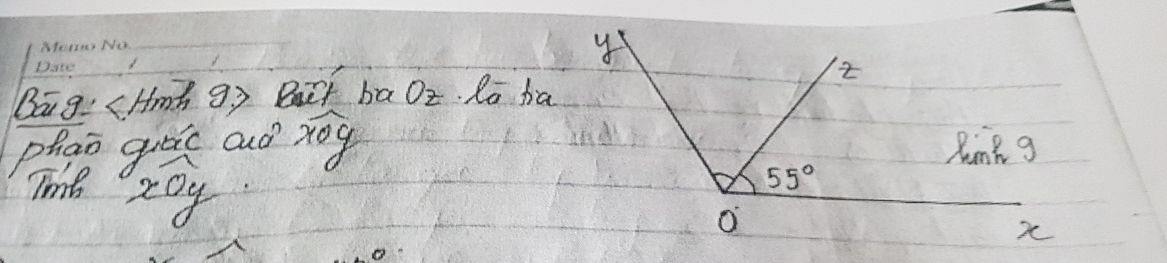 Memo No.
Date / /
Bài 9: <Hình 9> Biết tia Oz là tia
phân giác của xOy
Tính xOy.
y
z
55°
Hình 9
O
x